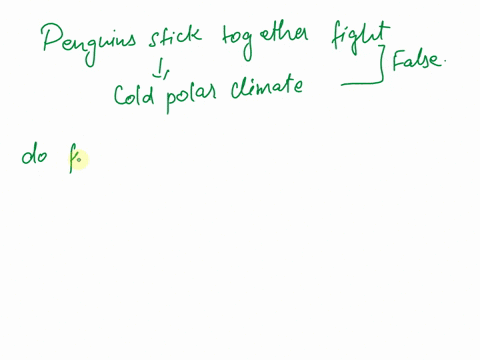 Penguins stick together fight
False.
Cold polar climate
do